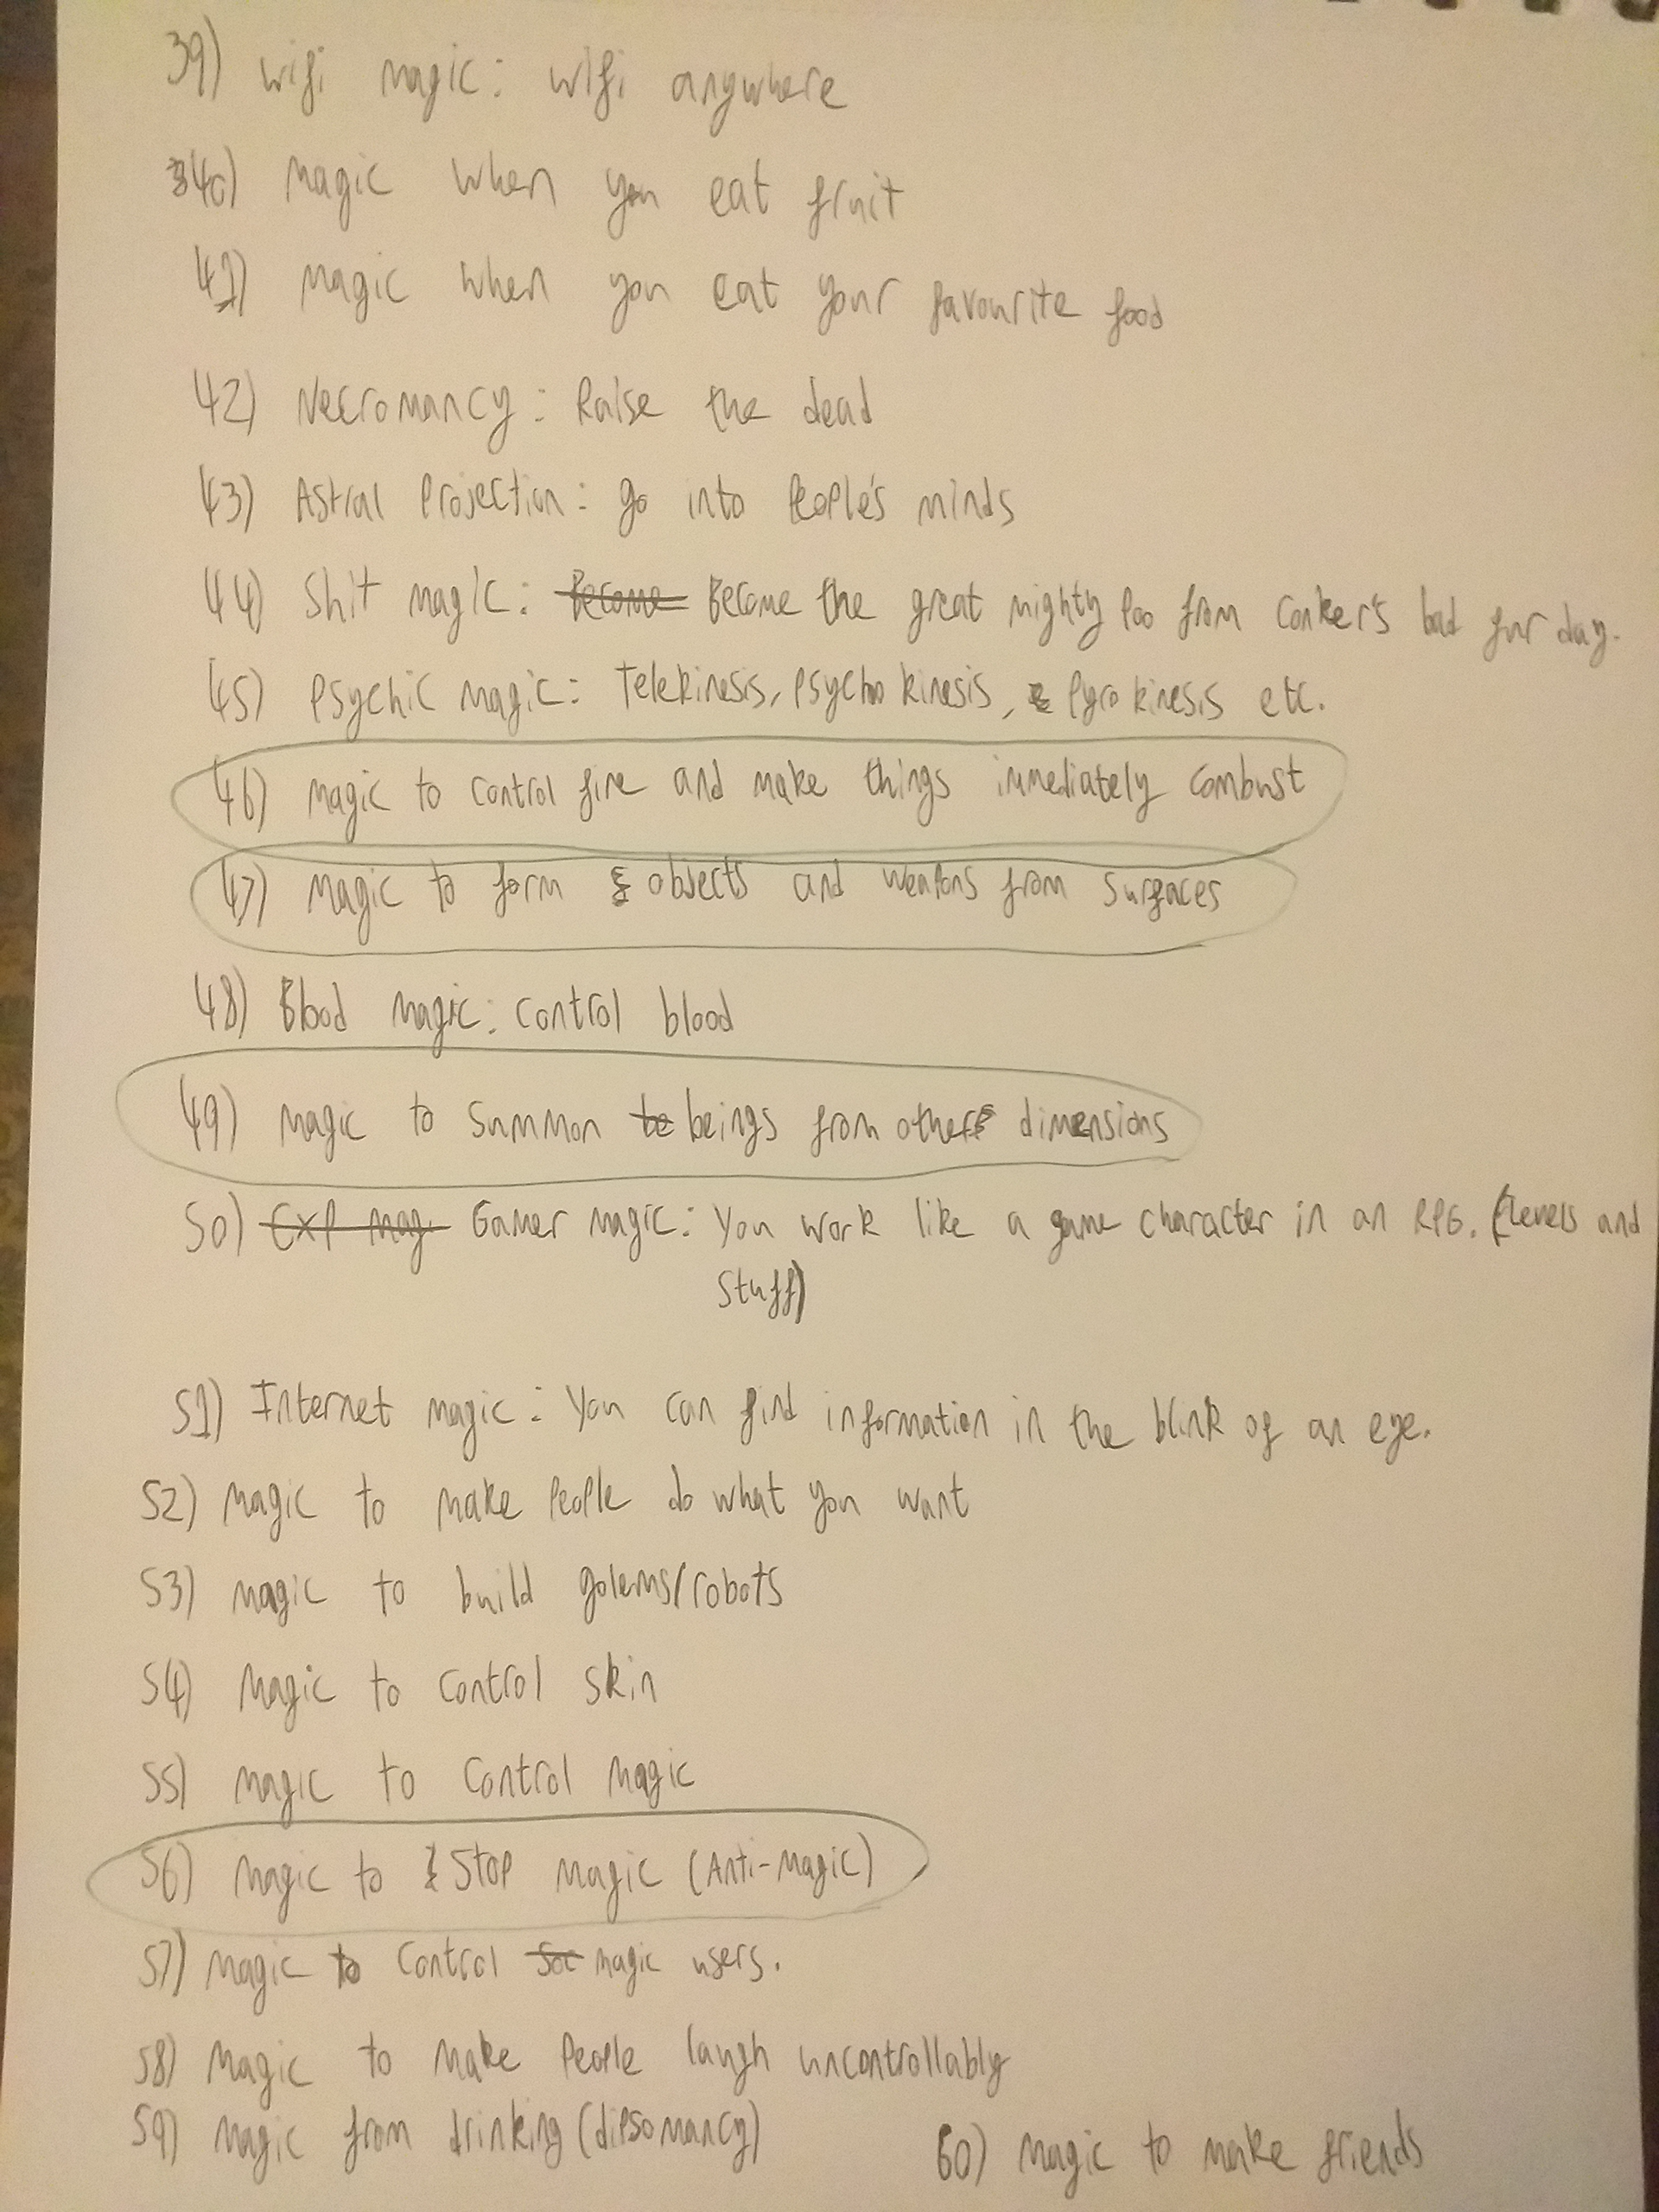 39) Wifi magic: wifi anywhere
40) Magic when you eat fruit
41) Magic when you eat your favourite food
42) Necromancy: Raise the dead
43) Astral Projection: go into People's minds
44) Shit magic: Become Become the great mighty Poo from Conker's bad fur day.
45) Psychic Magic: Telekinesis, Psychokinesis, Pyrokinesis etc.
46) Magic to control fire and make things immediately combust
47) Magic to form objects and weapons from surfaces
48) Blood Magic: Control blood
49) Magic to Summon be beings from other dimensions
50) Exp mag. Gamer magic: You work like a game character in an RPG. (levels and
Stuff)
51) Internet magic: You can find information in the blink of an eye.
52) Magic to make People do what you want
53) Magic to build golems/robots
54) Magic to control skin
55) Magic to control magic
56) Magic to Stop Magic (Anti-Magic)
57) Magic to Control magic users.
58) Magic to make People laugh uncontrollably
59) Magic from drinking (dipsomancy) 60) Magic to make friends